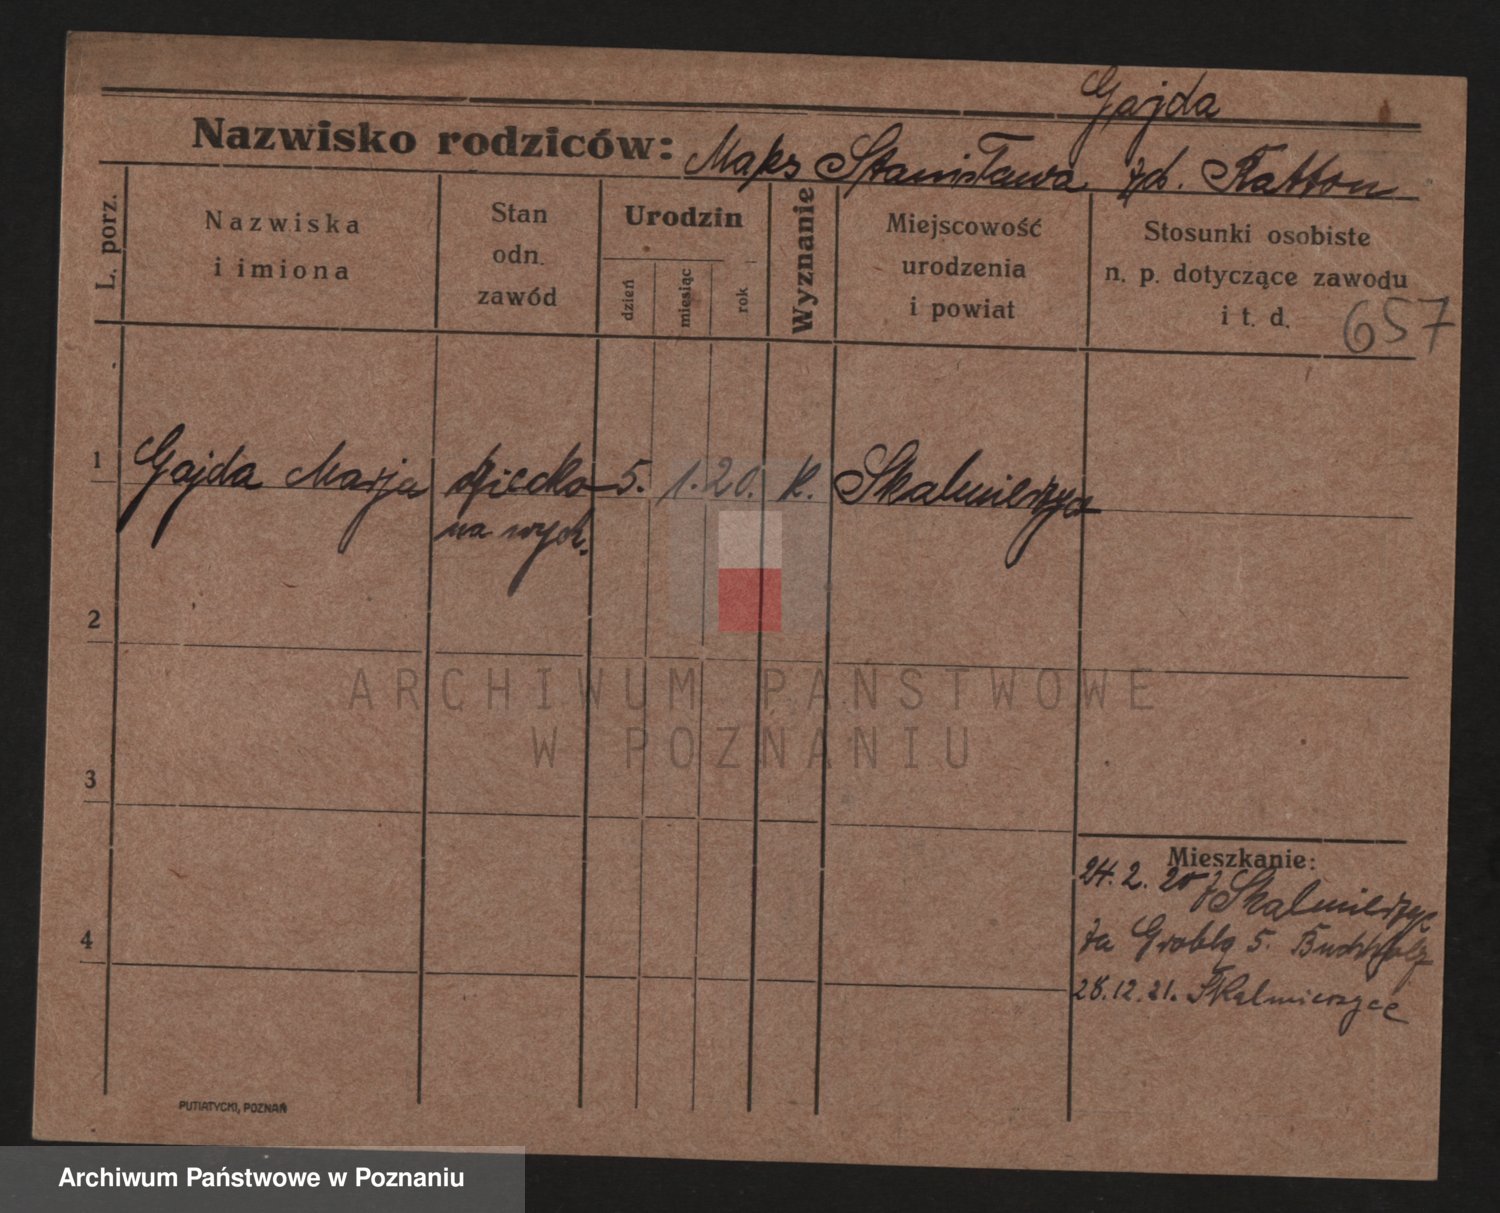 Gajda
Nazwisko rodziców: Maks Stanisława zd. Ratton
L. porz.
Nazwiska
i imiona
Stan
odn.
zawód
Urodzin
dzień
miesiąc
rok
Wyznanie
Miejscowość
urodzenia
i powiat
Stosunki osobiste
n. p. dotyczące zawodu
i t. d.
657
1 Gajda Marja dziecko 5. 1. 20. k. Skalmierzyce
na wych.
2
3
4
ARCHIWUM PAŃSTWOWE
W POZNANIU
Mieszkanie:
24. 2. 20 z Skalmierzyc
Za Groblą 5. Buchholz
28.12.21. Skalmierzyce
PUTIATYCKI, POZNAŃ
Archiwum Państwowe w Poznaniu